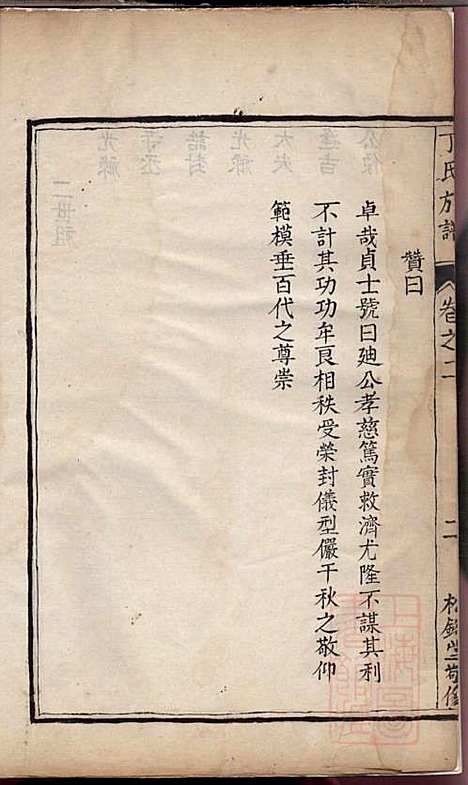 丁氏族譜
卷之二
二
贊曰
卓哉貞士號曰廸公孝慈篤實救濟尤隆不謀其利
不計其功功牟良相秩受榮封儀型儼千秋之敬仰
範模垂百代之尊崇
二世祖